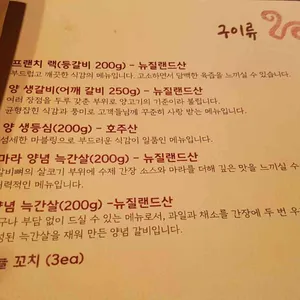 구이류
프렌치 랙(등갈비 200g) - 뉴질랜드산
부드럽고 깨끗한 식감의 메뉴입니다. 고소하면서 담백한 육즙을 느끼실 수 있습니다.
양 생갈비(어깨 갈비 250g) - 뉴질랜드산
여러 장점을 두루 갖춘 부위로 양고기의 기준이라 불립니다.
균형잡힌 식감과 풍미로 고객들님께 꾸준히 사랑 받는 메뉴입니다.
양 생등심(200g) - 호주산
섬세한 마블링으로 부드러운 식감이 일품인 메뉴입니다.
마라 양념 늑간살(200g) - 뉴질랜드산
갈비뼈의 살코기 부위에 수제 간장 소스와 마라를 더해 깊은 맛을 느끼실 수
매력적인 메뉴입니다.
양념 늑간살(200g) -뉴질랜드산
구나 부담 없이 드실 수 있는 메뉴로서, 과일과 채소를 간장에 두 번 우
성된 늑간살을 재워 만든 양념 갈비입니다.
꼬치 (3ea)